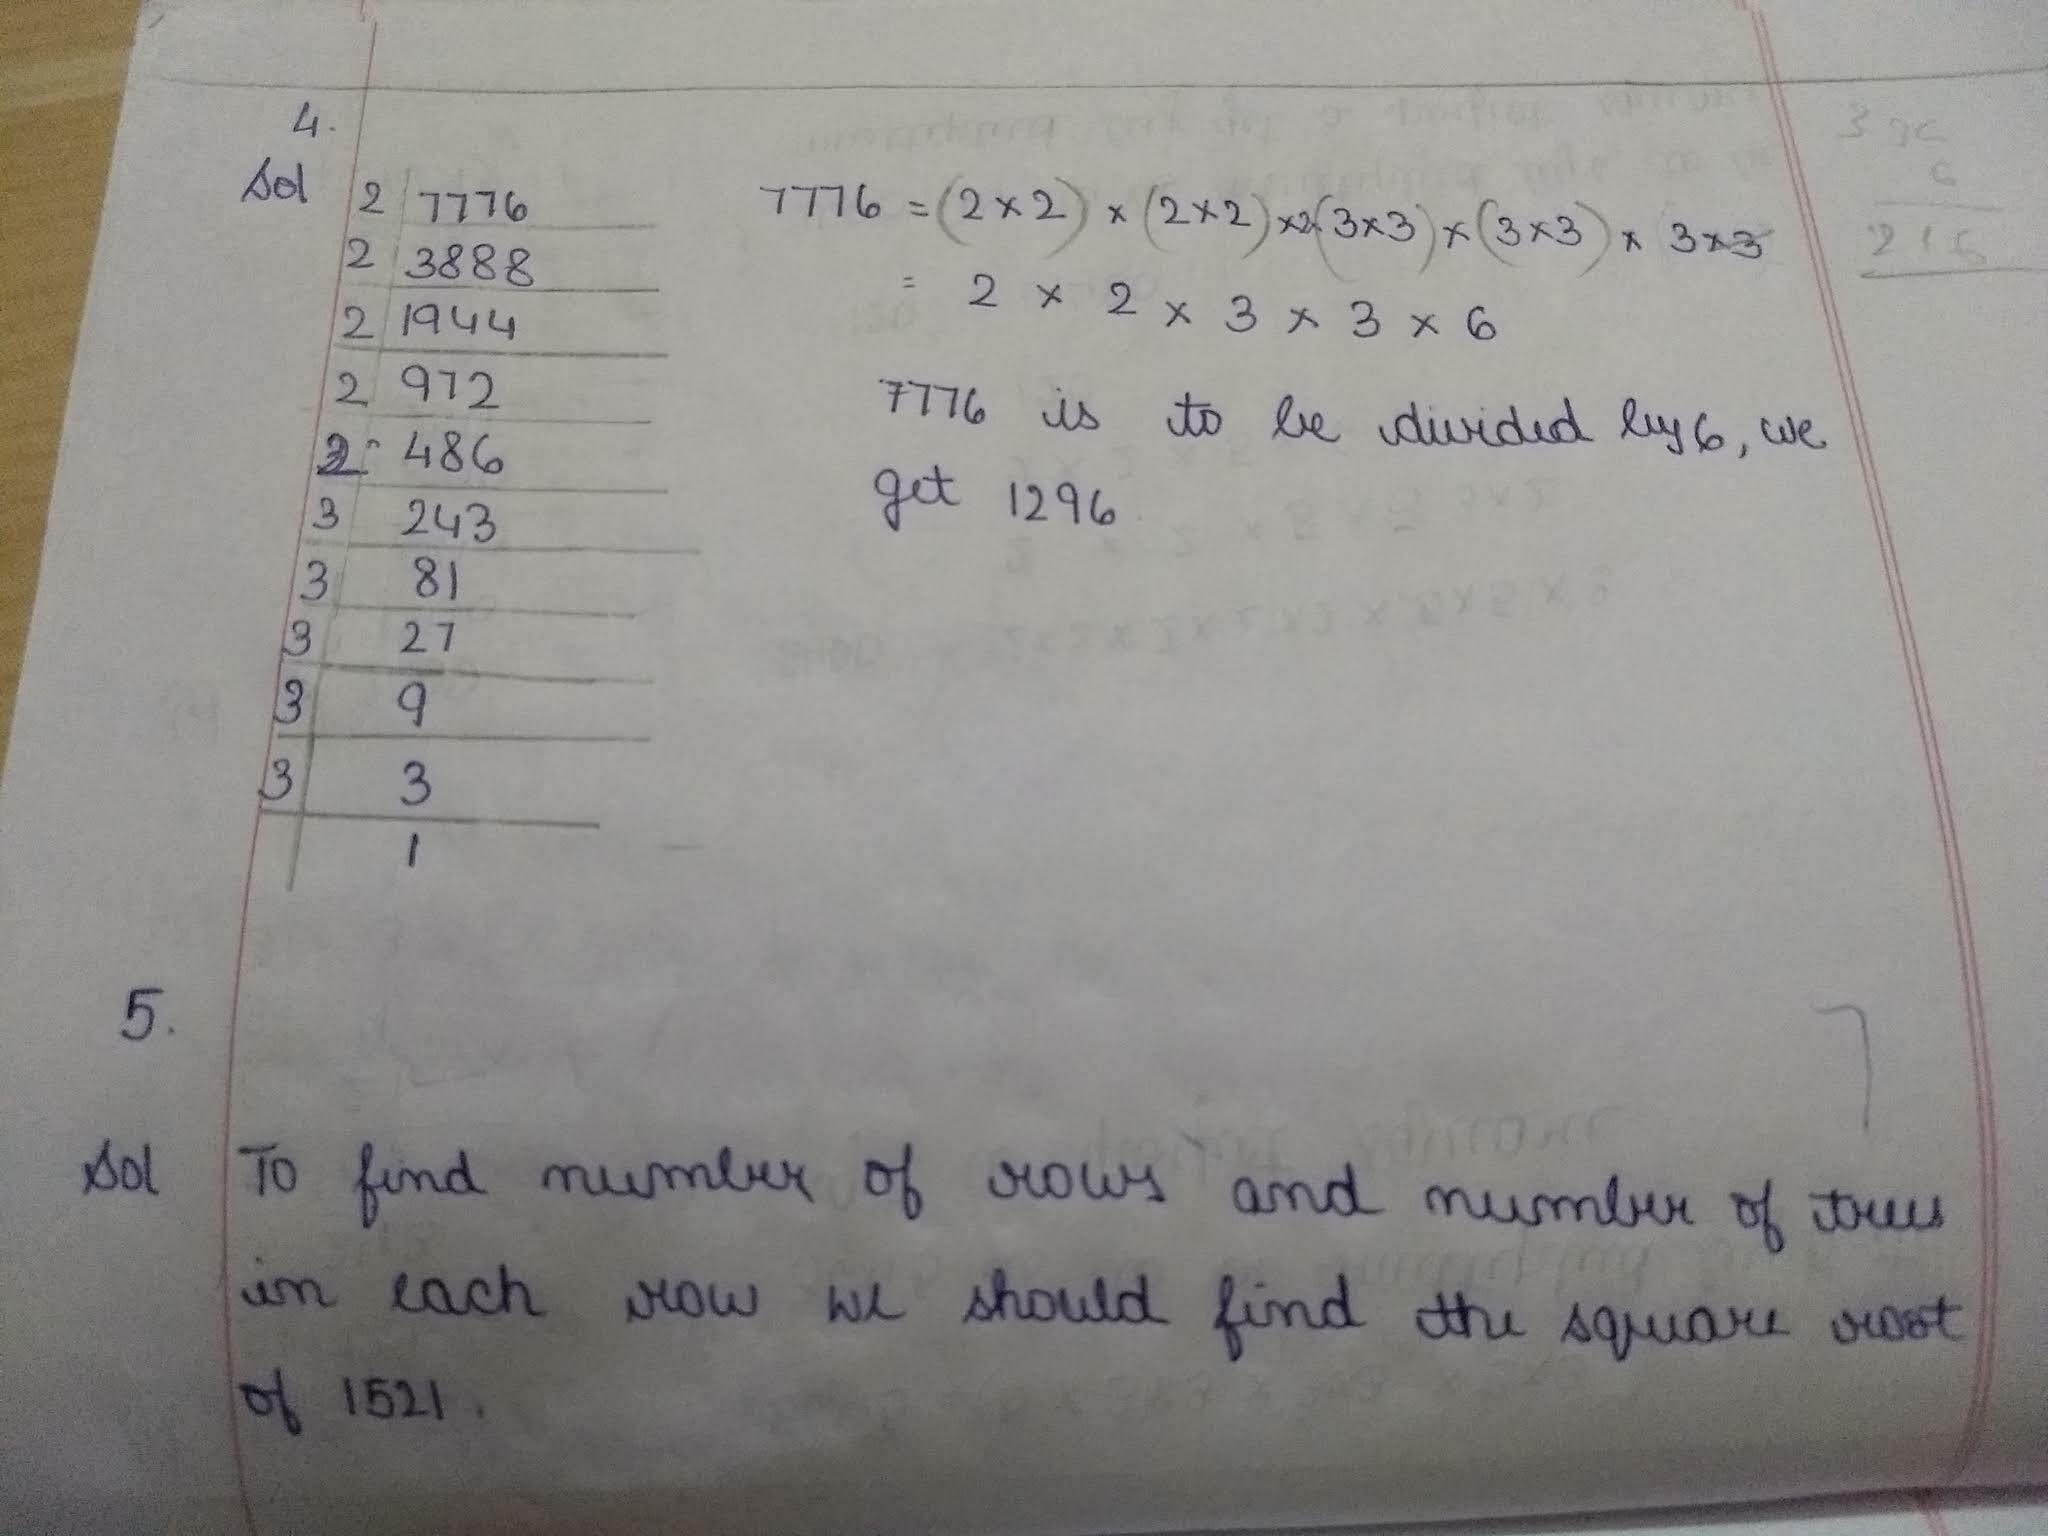 4.
Sol
2 7776
2 3888
2 1944
2 972
2 486
3 243
3 81
3 27
3 9
3 3
1
7776 = (2×2) × (2×2) ×2×(3×3) × (3×3) × 3×3
= 2 × 2 × 3 × 3 × 6
7776 is to be divided by 6, we
get 1296.
36
6
216
5.
Sol To find number of rows and number of trees
in each row we should find the square root
of 1521.